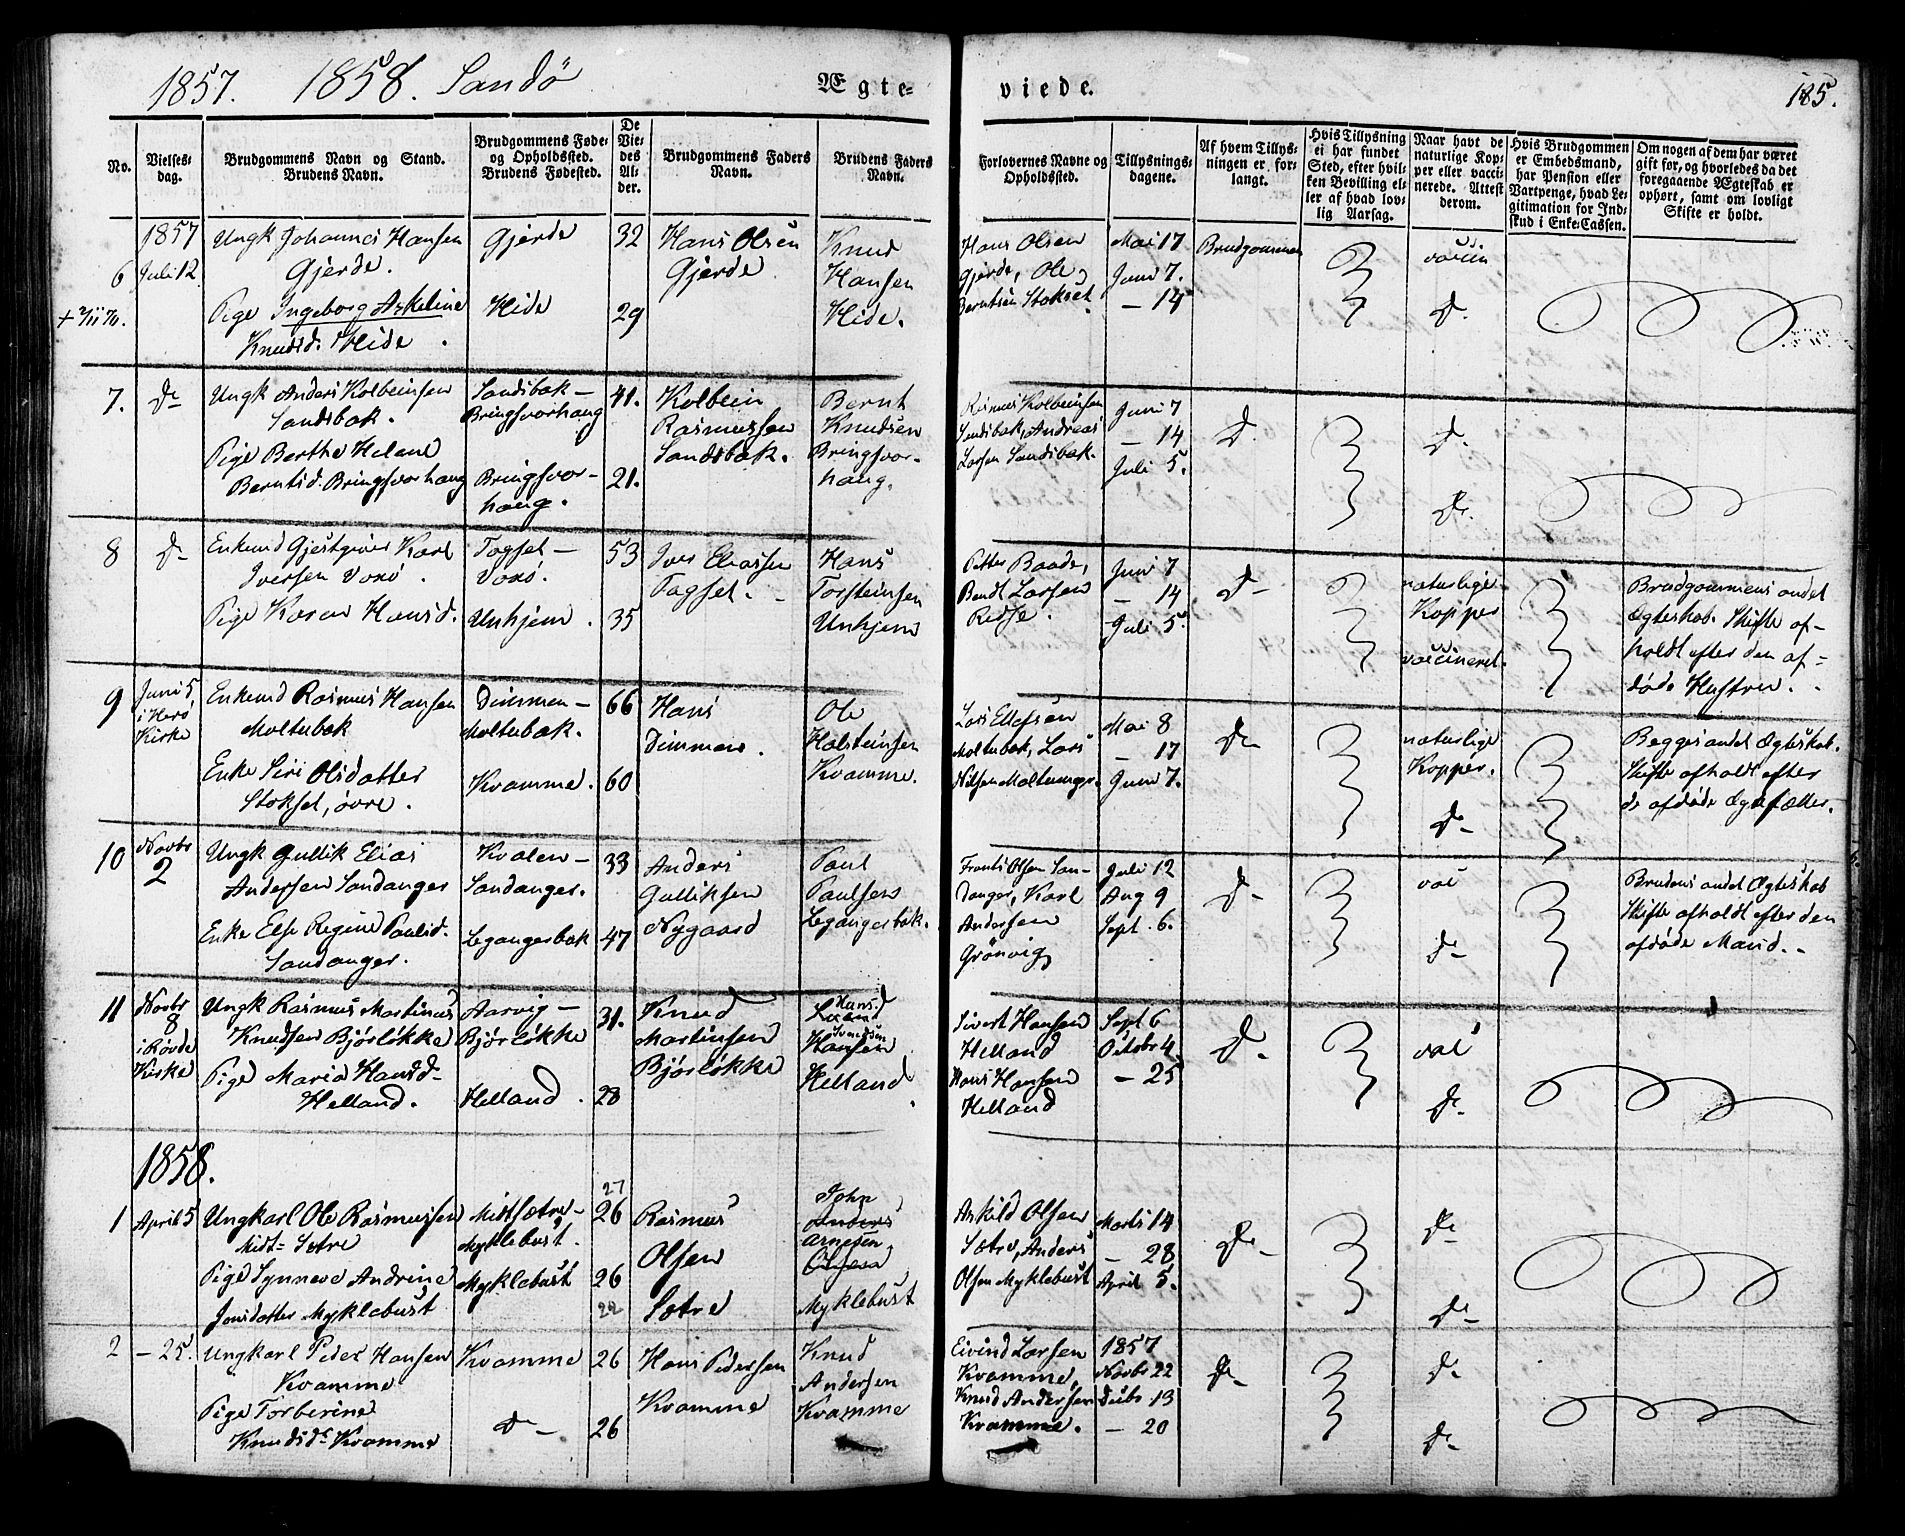 1857. 1858. Sandö
Ægte-
viede.
185.
No.
Vielses-
dag.
Brudgommens Navn og Stand.
Brudens Navn.
Brudgommens Føde-
og Opholdssted.
Brudens Fødested.
De
Vie-
des
Al-
der.
Brudgommens Faders
Navn.
Brudens Faders
Navn.
Forlovernes Navne og
Opholdssted.
Tillysnings-
dagene.
Af hvem Tillys-
ningen er for-
langt.
Hvis Tillysning
ei har fundet
Sted, efter hvil-
ken Bevilling el-
ler af hvad lov-
lig Aarsag.
Naar havt de
naturlige Kop-
per eller vacci-
nerede. Attest
derom.
Hvis Brudgommen
er Embedsmand,
har Pension eller
Vartpenge, hvad Le-
gitimation for Ind-
skud i Enke-Cassen.
Om nogen af dem har været
gift før, og hvorledes da det
foregaaende Ægteskab er
ophørt, samt om lovligt
Skifte er holdt.
6
1857
Juli 12
Ungk Johannes Hansen
Gjerde.
Pige Ingeborg Askeline
Knudsd. Hide
Gjerde
Hide
32
29
Hans Olsen
Gjerde
Knud
Hansen
Hide.
Hans Olsen
Gjerde, Ole
Berntsen Stokset
Mai 17
Juni 7.
— 14
Brudgommen
vaccin
Do.
7.
Do
Ungk Anders Kolbeinsen
Sandsbak.
Pige Berthe Helene
Berntsd. Bringsvorhaug
Sandsbak —
Bringsvorhaug
Bringsvor-
haug.
41.
21.
Kolbein
Rasmussen
Sandsbak.
Bernt
Knudsen
Bringsvor-
haug.
Rasmus Kolbeinsen
Sandsbak, Andreas
Larsen Sandsbak.
Juni 7
— 14
Juli 5.
Do.
Do.
Do.
8
Do
Enkemd Gjestgiver Karl
Iversen Voxö.
Pige Karen Hansd.
Fogset —
Voxö.
Unhjem.
53
35
Iver Eliassen
Fogset.
Hans
Torsteinsen
Unhjem
Petter Baade,
Bendt Larsen
Ridse.
Juni 7
— 14
Juli 5.
Do
naturlige
Kopper
vaccineret.
Brudgommens andet
Ægteskab. Skifte af-
holdt efter den af-
døde Hustru.
9
Juni 5
i Herö
Kirke
Enkemd Rasmus Hansen
Moltubak
Enke Siri Olsdatter
Stokset, övre.
Dimmen —
Moltubak.
Kvamme.
66
60
Hans
Dimmen.
Ole
Holsteinsen
Kvamme.
Lars Ellefsen
Moltubak, Lars
Nilsen Moltumyr.
Mai 8
— 17
Juni 7.
Do
naturlige
Kopper.
Do
Begges andet Ægteskab.
Skifte afholdt efter
de afdøde Ægtefæller.
10
Novbr
2
Ungk Gullik Elias
Andersen Sandanger
Enke Else Regine Paulsd.
Sandanger.
Kvalen —
Sandanger.
Legangerbak
33
47
Anders
Gulliksen
Nygaard
Paul
Paulsen
Legangerbak.
Frants Olsen San-
danger, Karl
Andersen
Grönvig
Juli 12
Aug 9
Sept. 6.
Do
vac
Do
Brudens andet Ægteskab
Skifte afholdt efter den
afdøde Mand.
11
Novbr
8
i Rövde
Kirke
Ungk Rasmus Martinus
Knudsen Bjørløkke
Pige Maria Hansd.
Helland.
Aarvig —
Bjørløkke
Helland.
31.
28
Knud
Martinsen
Bjørløkke
Hans
Svendsen
Hansen
Helland
Sivert Hansen
Helland
Hans Hansen
Helland
Sept 6
Octobr 4
— 25
Do.
vac
Do.
1858.
1
April 5
Ungkarl Ole Rasmussen
Midt-Sætre
Pige Synneve Andrine
Jonsdatter Myklebust
Midtsætre —
Myklebust.
Myklebust
27
26
26
22
Rasmus
Olsen
Sætre
John
Anders
Arnesen
Myklebust
Askild Olsen
Sætre, Anders
Olsen Myklebust
Marts 14
— 28
April 5.
Do
Do
Do
2
— 25.
Ungkarl Peder Hansen
Kvamme
Pige Torberine
Knudsdr Kvamme
Kvamme
Do
26
26
Hans Pedersen
Kvamme
Knud
Andersen
Kvamme
Eivind Larsen
Kvamme,
Knud Andersen
Kvamme.
1857
Novbr 22
Decbr 13
— 20
Do
Do
Do